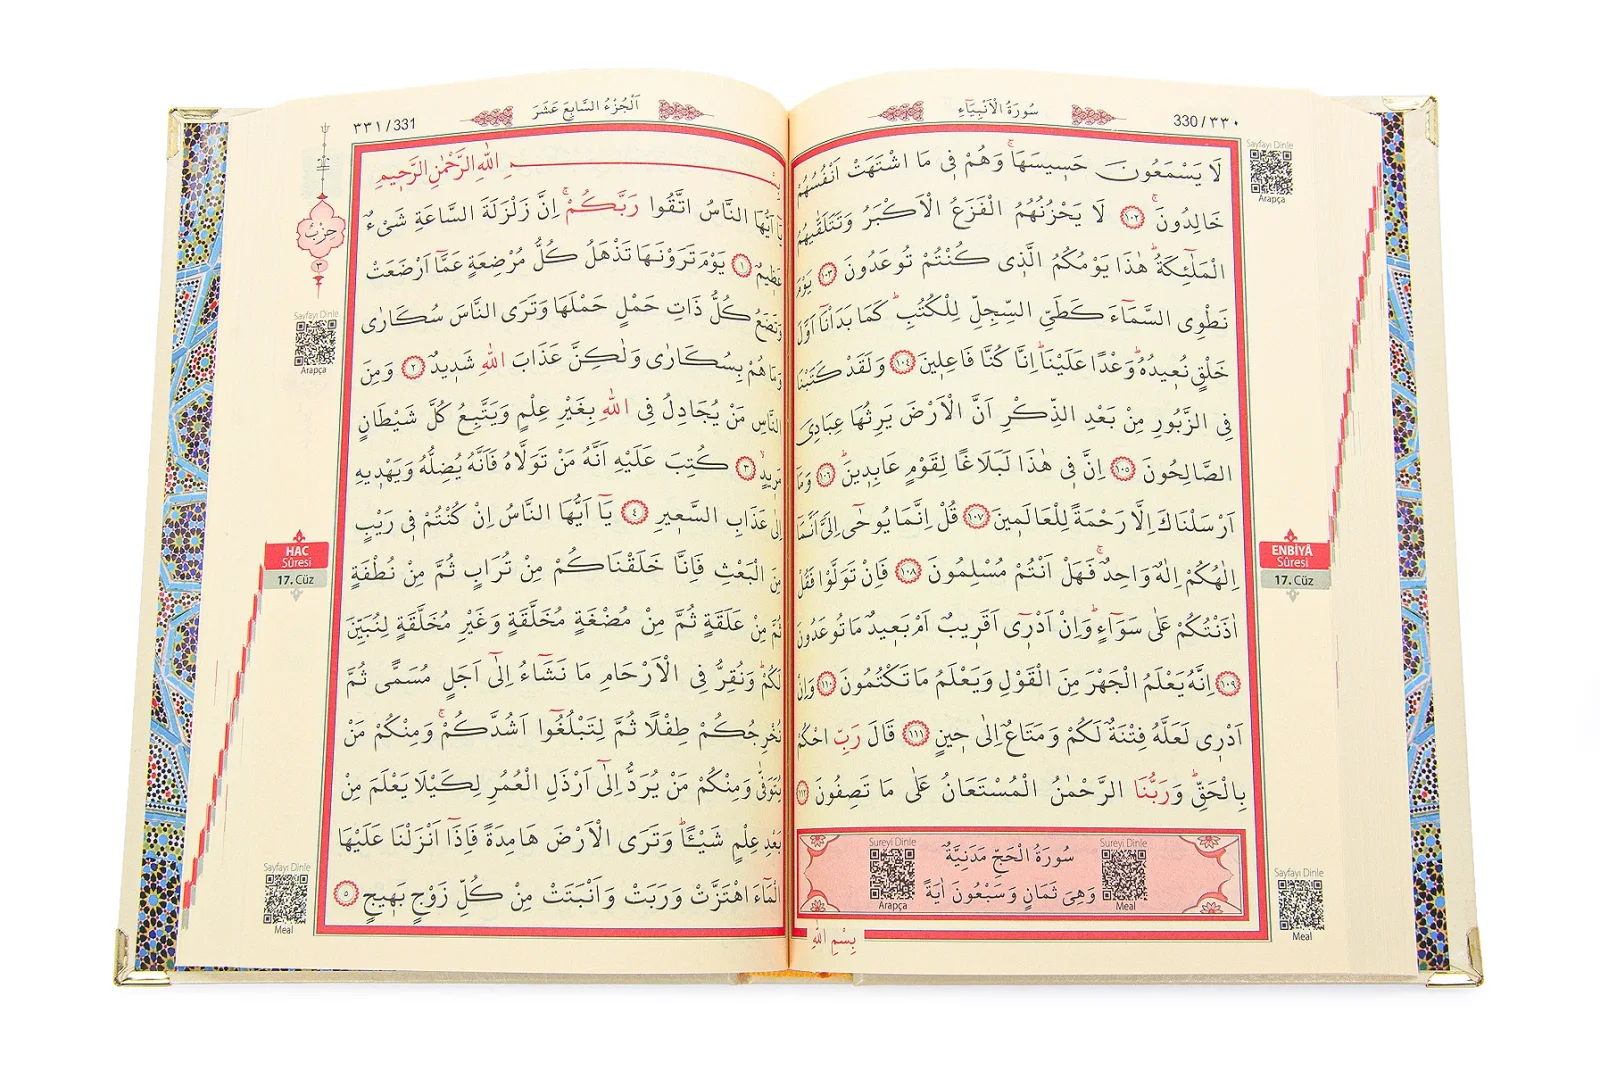 سُورَةُ الْاَنْبِيَاءِ
330 / ٣٣٠
لَا يَسْمَعُونَ حَسٖيسَهَاۚ وَهُمْ فٖى مَا اشْتَهَتْ اَنْفُسُهُمْ
خَالِدُونَۚ ﴿١٠٢﴾ لَا يَحْزُنُهُمُ الْفَزَعُ الْاَكْبَرُ وَتَتَلَقّٰيهُمُ
الْمَلٰٓئِكَةُؕ هٰذَا يَوْمُكُمُ الَّذٖى كُنْتُمْ تُوعَدُونَ ﴿١٠٣﴾ يَوْمَ
نَطْوِى السَّمَٓاءَ كَطَىِّ السِّجِلِّ لِلْكُتُبِؕ كَمَا بَدَأْنَٓا اَوَّلَ
خَلْقٍ نُعٖيدُهُؕ وَعْدًا عَلَيْنَاؕ اِنَّا كُنَّا فَاعِلٖينَ ﴿١٠٤﴾ وَلَقَدْ كَتَبْنَا
فِى الزَّبُورِ مِنْ بَعْدِ الذِّكْرِ اَنَّ الْاَرْضَ يَرِثُهَا عِبَادِىَ
الصَّالِحُونَ ﴿١٠٥﴾ اِنَّ فٖى هٰذَا لَبَلَاغًا لِقَوْمٍ عَابِدٖينَؕ ﴿١٠٦﴾ وَمَٓا
اَرْسَلْنَاكَ اِلَّا رَحْمَةً لِلْعَالَمٖينَ ﴿١٠٧﴾ قُلْ اِنَّمَا يُوحٰٓى اِلَىَّ اَنَّمَٓا
اِلٰهُكُمْ اِلٰهٌ وَاحِدٌۚ فَهَلْ اَنْتُمْ مُسْلِمُونَ ﴿١٠٨﴾ فَاِنْ تَوَلَّوْا فَقُلْ
اٰذَنْتُكُمْ عَلٰى سَوَٓاءٍؕ وَاِنْ اَدْرٖٓى اَقَرٖيبٌ اَمْ بَعٖيدٌ مَا تُوعَدُونَ
﴿١٠٩﴾ اِنَّهُ يَعْلَمُ الْجَهْرَ مِنَ الْقَوْلِ وَيَعْلَمُ مَا تَكْتُمُونَ ﴿١١٠﴾ وَاِنْ
اَدْرٖى لَعَلَّهُ فِتْنَةٌ لَكُمْ وَمَتَاعٌ اِلٰى حٖينٍ ﴿١١١﴾ قَالَ رَبِّ احْكُمْ
بِالْحَقِّؕ وَرَبُّنَا الرَّحْمٰنُ الْمُسْتَعَانُ عَلٰى مَا تَصِفُونَ ﴿١١٢﴾
سُورَةُ الْحَجِّ مَدَنِيَّةٌ
وَهِىَ ثَمَانٍ وَسَبْعُونَ اٰيَةً
Sureyi Dinle
Arapça
Sureyi Dinle
Meal
بِسْمِ اللّٰهِ
Sayfayı Dinle
Arapça
ENBİYÂ
Sûresi
17. Cüz
Sayfayı Dinle
Meal
اَلْجُزْءُ السَّابِعَ عَشَرَ
٣٣١ / 331
بِسْمِ اللّٰهِ الرَّحْمٰنِ الرَّحٖيمِ
يَٓا اَيُّهَا النَّاسُ اتَّقُوا رَبَّكُمْۚ اِنَّ زَلْزَلَةَ السَّاعَةِ شَىْءٌ
عَظٖيمٌ ﴿١﴾ يَوْمَ تَرَوْنَهَا تَذْهَلُ كُلُّ مُرْضِعَةٍ عَمَّٓا اَرْضَعَتْ
وَتَضَعُ كُلُّ ذَاتِ حَمْلٍ حَمْلَهَا وَتَرَى النَّاسَ سُكَارٰى
وَمَا هُمْ بِسُكَارٰى وَلٰكِنَّ عَذَابَ اللّٰهِ شَدٖيدٌ ﴿٢﴾ وَمِنَ
النَّاسِ مَنْ يُجَادِلُ فِى اللّٰهِ بِغَيْرِ عِلْمٍ وَيَتَّبِعُ كُلَّ شَيْطَانٍ
مَرٖيدٍۙ ﴿٣﴾ كُتِبَ عَلَيْهِ اَنَّهُ مَنْ تَوَلَّاهُ فَاَنَّهُ يُضِلُّهُ وَيَهْدٖيهِ
اِلٰى عَذَابِ السَّعٖيرِ ﴿٤﴾ يَٓا اَيُّهَا النَّاسُ اِنْ كُنْتُمْ فٖى رَيْبٍ
مِنَ الْبَعْثِ فَاِنَّا خَلَقْنَاكُمْ مِنْ تُرَابٍ ثُمَّ مِنْ نُطْفَةٍ
ثُمَّ مِنْ عَلَقَةٍ ثُمَّ مِنْ مُضْغَةٍ مُخَلَّقَةٍ وَغَيْرِ مُخَلَّقَةٍ لِنُبَيِّنَ
لَكُمْؕ وَنُقِرُّ فِى الْاَرْحَامِ مَا نَشَٓاءُ اِلٰٓى اَجَلٍ مُسَمًّى ثُمَّ
نُخْرِجُكُمْ طِفْلًا ثُمَّ لِتَبْلُغُٓوا اَشُدَّكُمْۚ وَمِنْكُمْ مَنْ
يُتَوَفّٰى وَمِنْكُمْ مَنْ يُرَدُّ اِلٰٓى اَرْذَلِ الْعُمُرِ لِكَيْلَا يَعْلَمَ مِنْ
بَعْدِ عِلْمٍ شَيْـًٔاؕ وَتَرَى الْاَرْضَ هَامِدَةً فَاِذَٓا اَنْزَلْنَا عَلَيْهَا
الْمَٓاءَ اهْتَزَّتْ وَرَبَتْ وَاَنْبَتَتْ مِنْ كُلِّ زَوْجٍ بَهٖيجٍ ﴿٥﴾
حِزْبٌ
٣
Sayfayı Dinle
Arapça
HAC
Sûresi
17. Cüz
Sayfayı Dinle
Meal